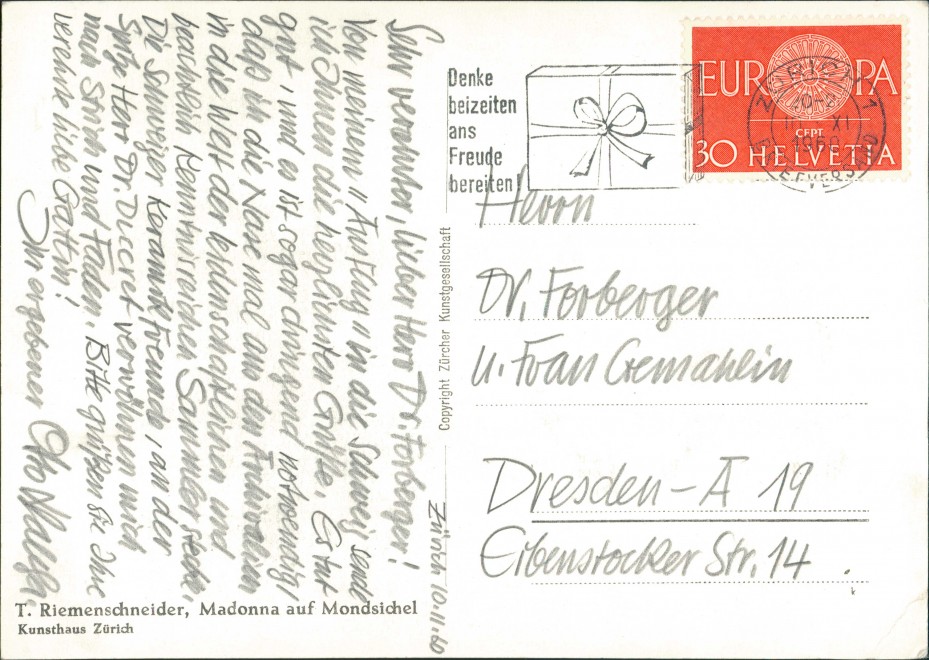 Zürich 10.11.60
Sehr verehrter, lieber Herr Dr. Forberger!
Von meinem „Ausflug" in die Schweiz sende
ich Ihnen die herzlichsten Grüße. Es tut
gut, und es ist sogar dringend notwendig
daß ich die Nase mal aus den
in die Welt der leidenschaftlichen und
beachtlich kenntnisreichen Sammler stecke.
Die Schweizer Keramik Freunde, an der
Spitze Herr Dr. Ducret verwöhnen mich
nach Strich und Faden. Bitte grüßen Sie Ihre
verehrte liebe Gattin!
Ihr ergebener Otto Walcha.
T. Riemenschneider, Madonna auf Mondsichel
Kunsthaus Zürich
Copyright Zürcher Kunstgesellschaft
Denke
beizeiten
ans
Freude
bereiten!
EUROPA
CEPT
30 HELVETIA
ZÜRICH 1
XI
1960
BRIEFVERSAND
Herrn
Dr. Forberger
u. Frau Gemahlin
Dresden-A 19
Eibenstocker Str. 14.